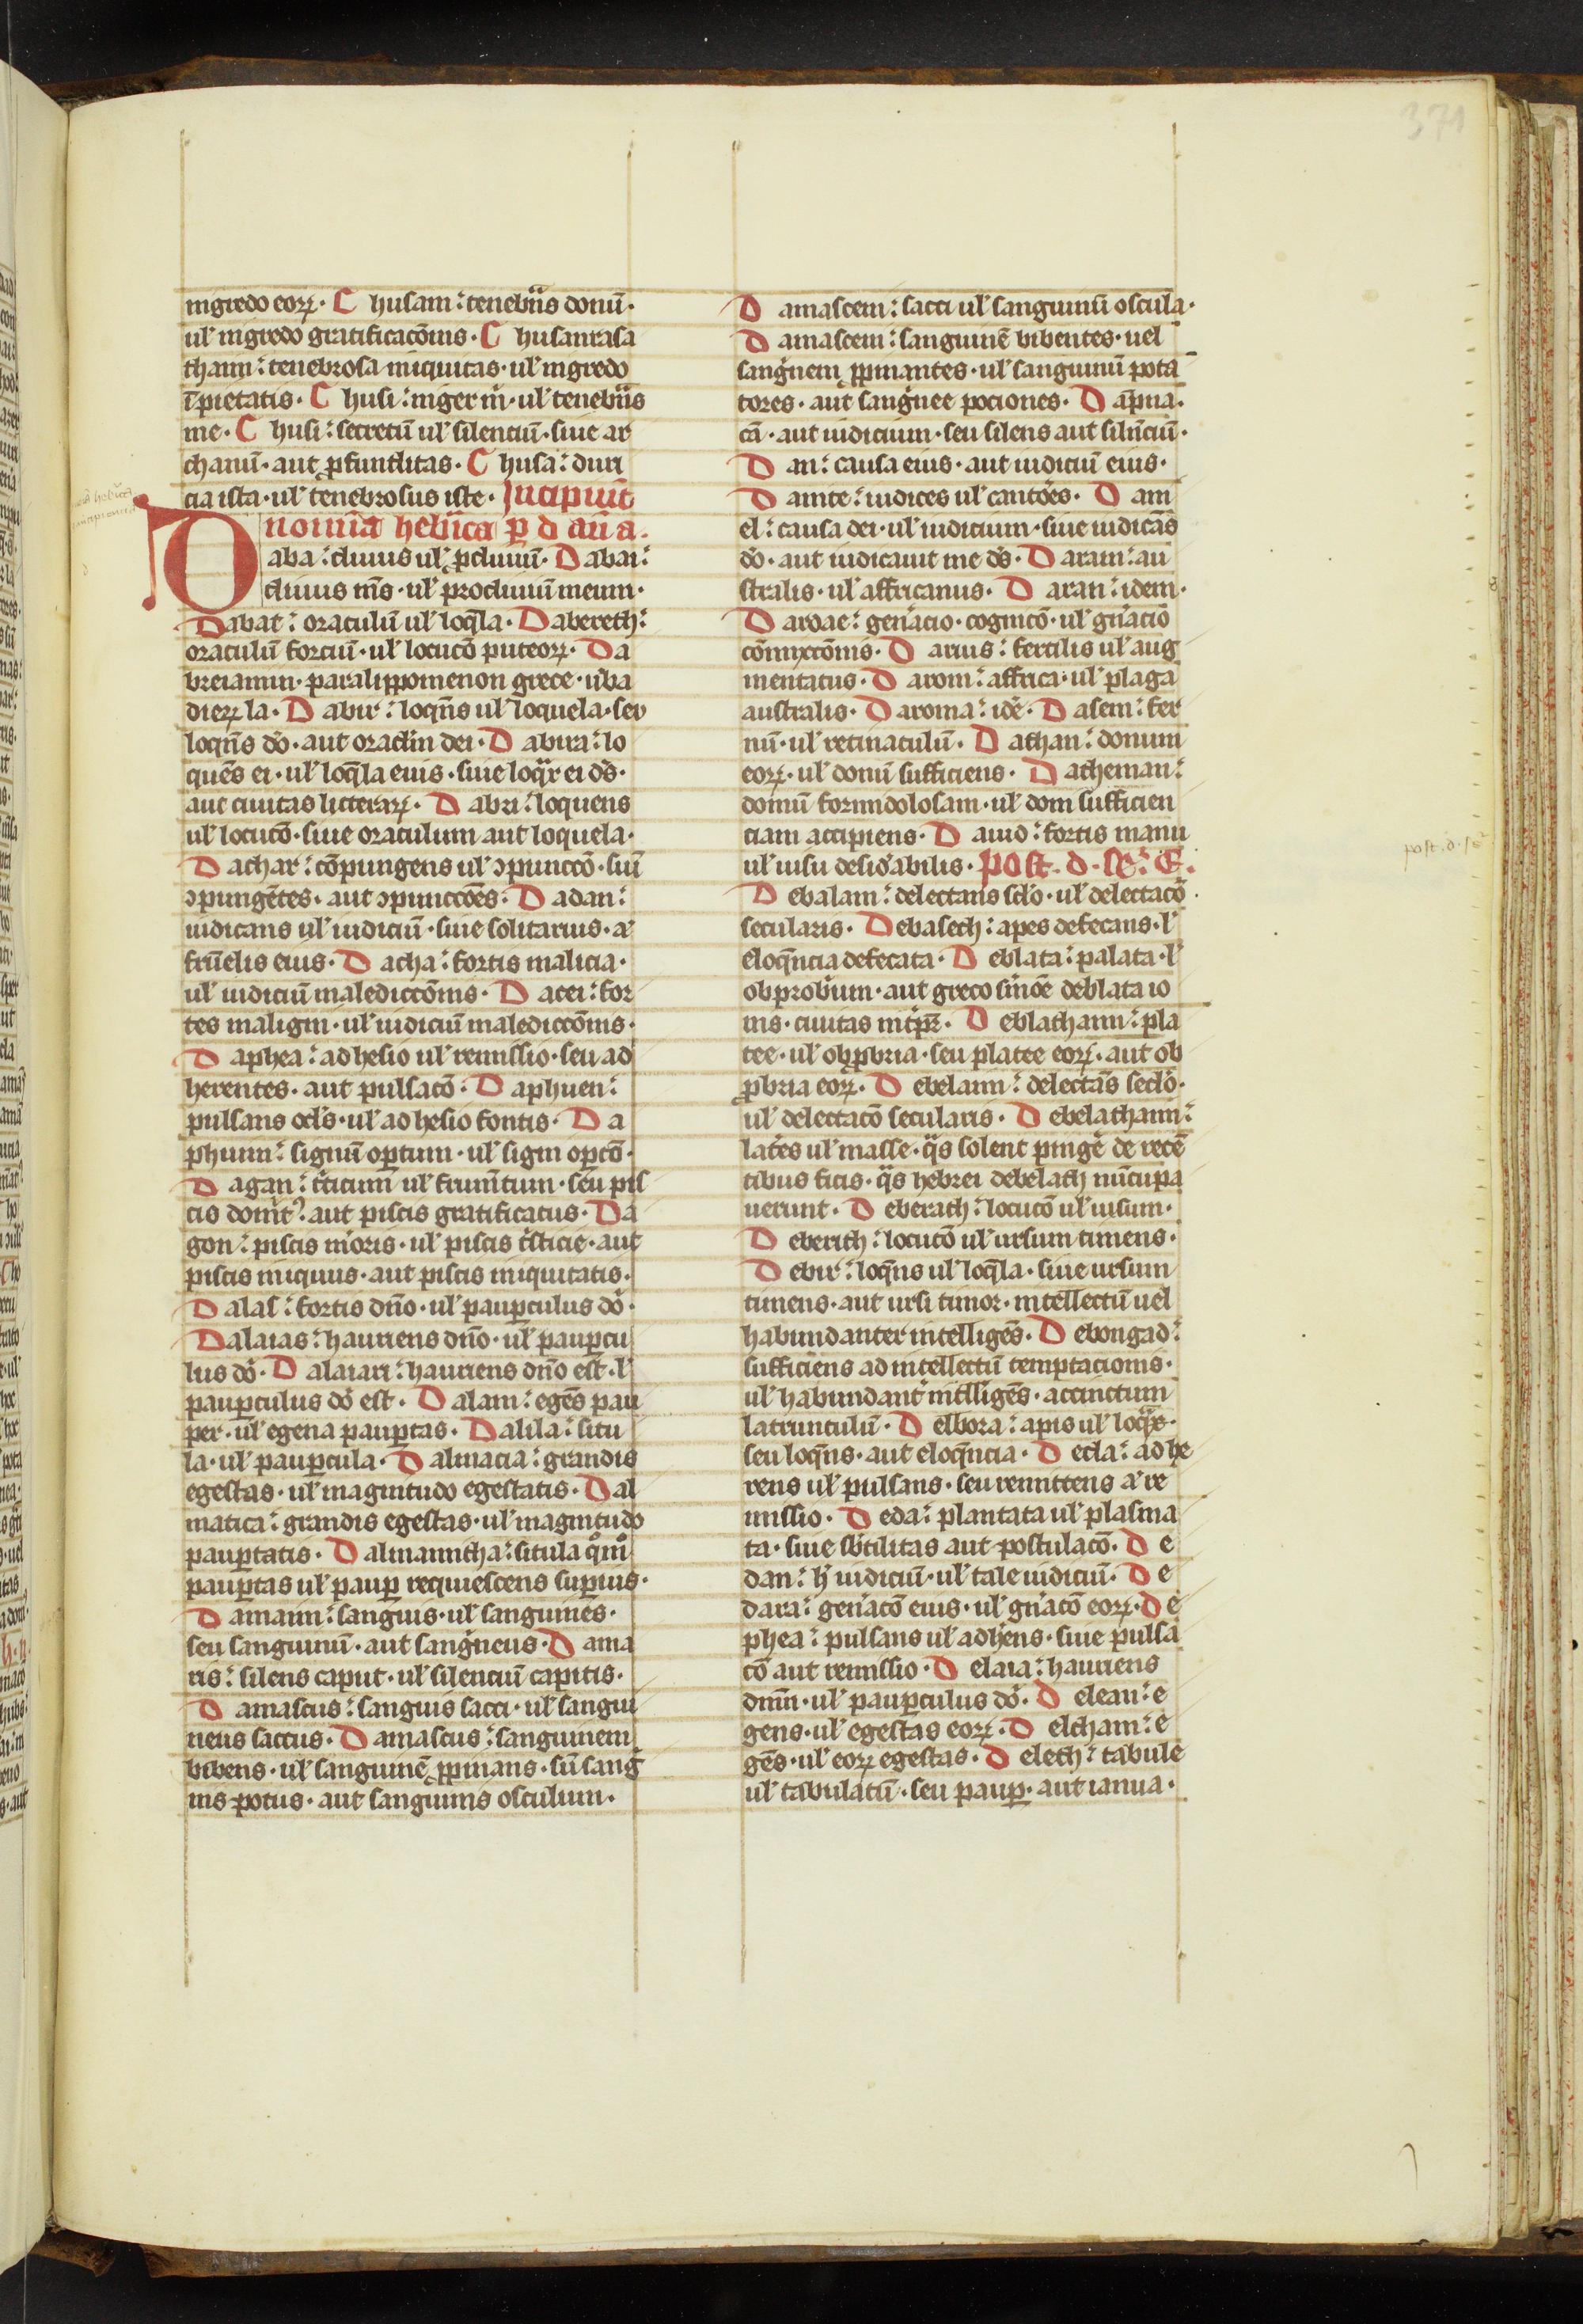 371
nigredo eoꝝ· C husam: tenebͥis donū·
ul' nigredo gratificacōnis· C husanrasa
thaim: tenebrosa iniquitas· ul' nigredo
īpietatis· C husi: niger m̄· ul' tenebͥis
me· C husi: secretū ul' silenciū· siue ar
chanū· aut ꝓfunditas· C husa: duri
cia ista· ul' tenebrosus iste· Incipiūt
noīa hebͥica p̄ d añ a·
Daba: cliuus ul' ꝓcliuiū· Dabai:
cliuus m̄s· ul' procliuiū meum·
Dabat: oraculū ul' loq̄la· Dabereth:
oraculū forciū· ul' locucō puteoꝝ· Da
breiamin· paralippomenon grece· ūba
dieꝝ la· Dabir: loqn̄s ul' loquela· seu
loqn̄s dō· aut oraclm dei· Dabira: lo
quēs ei· ul' loq̄la eius· siue loqͥr ei ds̄·
aut ciuitas litterarꝝ· Dabri: loquens
ul' locucō· siue oraculum aut loquela·
Dachar: cōpungens ul' ɔpunccō· siū
ɔpungētes· aut ɔpunccōēs· Dadan:
iudicans ul' iudiciū· siue solitarius· a'
fruēlis eius· Dacha: fortis malicia·
ul' iudiciū malediccōnis· Dacei: for
tes maligni· ul' iudiciū malediccōnis·
Daphea: adhesio ul' remissio· seu ad
herentes· aut pulsacō· Daphuen:
pulsans ocl's· ul' adhesio fontis· Da
phum: signū opertum· ul' signi opcō·
Dagan: t̄ticum ul' frumtum· seu pis
cis domit̓· aut piscis gratificatus· Da
gon: piscis m̄oris· ul' piscis tͥsticie· aut
piscis iniquus· aut piscis iniquitatis·
Dalas: fortis dn̄o· ul' paup̱culus dō·
Dalaias: hauriens dn̄o· ul' paup̱cu
lus dō· Dalaiari: hauriens dn̄o est· l'
paup̱culus dō est· Dalam: egēs pau
per· ul' egena paup̱tas· Dalila: situ
la· ul' paup̱cula· Dalmacia: grandis
egestas· ul' magnitudo egestatis· Dal
matica: grandis egestas· ul' magnitudo
paup̱tatis· Dalmanitha: situla qͦm̄
paup̱tas ul' paup̱ requiescens sup̱ius·
Damaim: sanguis· ul' sanguinēs·
seu sanguinū· aut sangͥneus· Dama
ris: silens caput· ul' silenciū capitis·
Damascus: sanguis sacci· ul' sangui
neus saccus· Damascus: sanguinem
bibens· ul' sanguinē ꝓpinans· siū sangͥ
nis potus· aut sanguinis osculum·
Damascem: sacci ul' sanguinū oscula·
Damascem: sanguinē bibentes· uel
sangͥnem ꝓpinantes· ul' sanguinū pota
tores· aut sangͥnee pociones· D ap̄na·
cā· aut iudicium· seu silens aut silnciū·
Dan: causa eius· aut iudiciū eius·
Damte: iudices ul' cantōes· Dani
el: causa dei· ul' iudicium· siue iudicās
dō· aut iudicauit me ds̄· Daram: au
stralis· ul' affricanus· Daran: idem·
Dardae: gen̄acio· cognicō· ul' gn̄aciō
cōmixcōnis· Darius: fertilis ul' aug
mentatus· Darom: affrica· ul' plaga
australis· Daroma: idē· Dasem: fer
nū· ul' retinaculū· Dathan: donum
eoꝝ· ul' donū sufficiens· Datheman:
domū formidolosam· ul' dom sufficien
ciam accipiens· Dauid: fortis manu
ul' uisu desidͥabilis· Post· d· sͤ· E·
Debalam: delectans sclō· ul' delectacō·
secularis· Debasech: apes defecans· l'
eloq̄ncia defecata· Deblata: palata· l'
obprobͥium· aut greco sm̄oē deblata io
nis· ciuitas intp̄r· Deblathaim: pla
tee· ul' obꝓbria· seu platee eoꝝ· aut ob
ꝓbria eoꝝ· Debelaim: delectās seclō·
ul' delectacō secularis· Debelathaim:
latēs ul' masse· qͣs solent pingē de recē
tibus ficis· qͣs hebrei debelath nūcupa
uerunt· Deberath: locucō ul' uisum·
Deberith: locucō ul' ursum timens·
Debir: loqn̄s ul' loq̄la· siue ursum
timens· aut ursi timor· intellectū uel
habundanter intelligēs· Debongad:
sufficiēns ad intellectū temptacionis·
ul' habundant̓ intll'igēs· accinctum
latrunculū· Delbora: apis ul' loqͣx·
seu loqn̄s· aut eloq̄ncia· Decla: adhe
rens ul' pulsans· seu remittens a' re
missio· Deda: plantata ul' plasma
ta· siue sb̄tilitas aut postulacō· De
dan: h' iudiciū· ul' tale iudiciū· De
dara: gen̄acō eius· ul' gn̄acō eoꝝ· De
phea: pulsans ul' adhēns· siue pulsa
cō aut remissio· Delaia: hauriens
dnm̄· ul' paup̱culus dō· Delean: e
gens· ul' egestas eoꝝ· Delcham: e
gēs· ul' eoꝝ egestas· Delech: tabule
ul' tabulatū· seu paup̱· aut ianua·
post · d · se